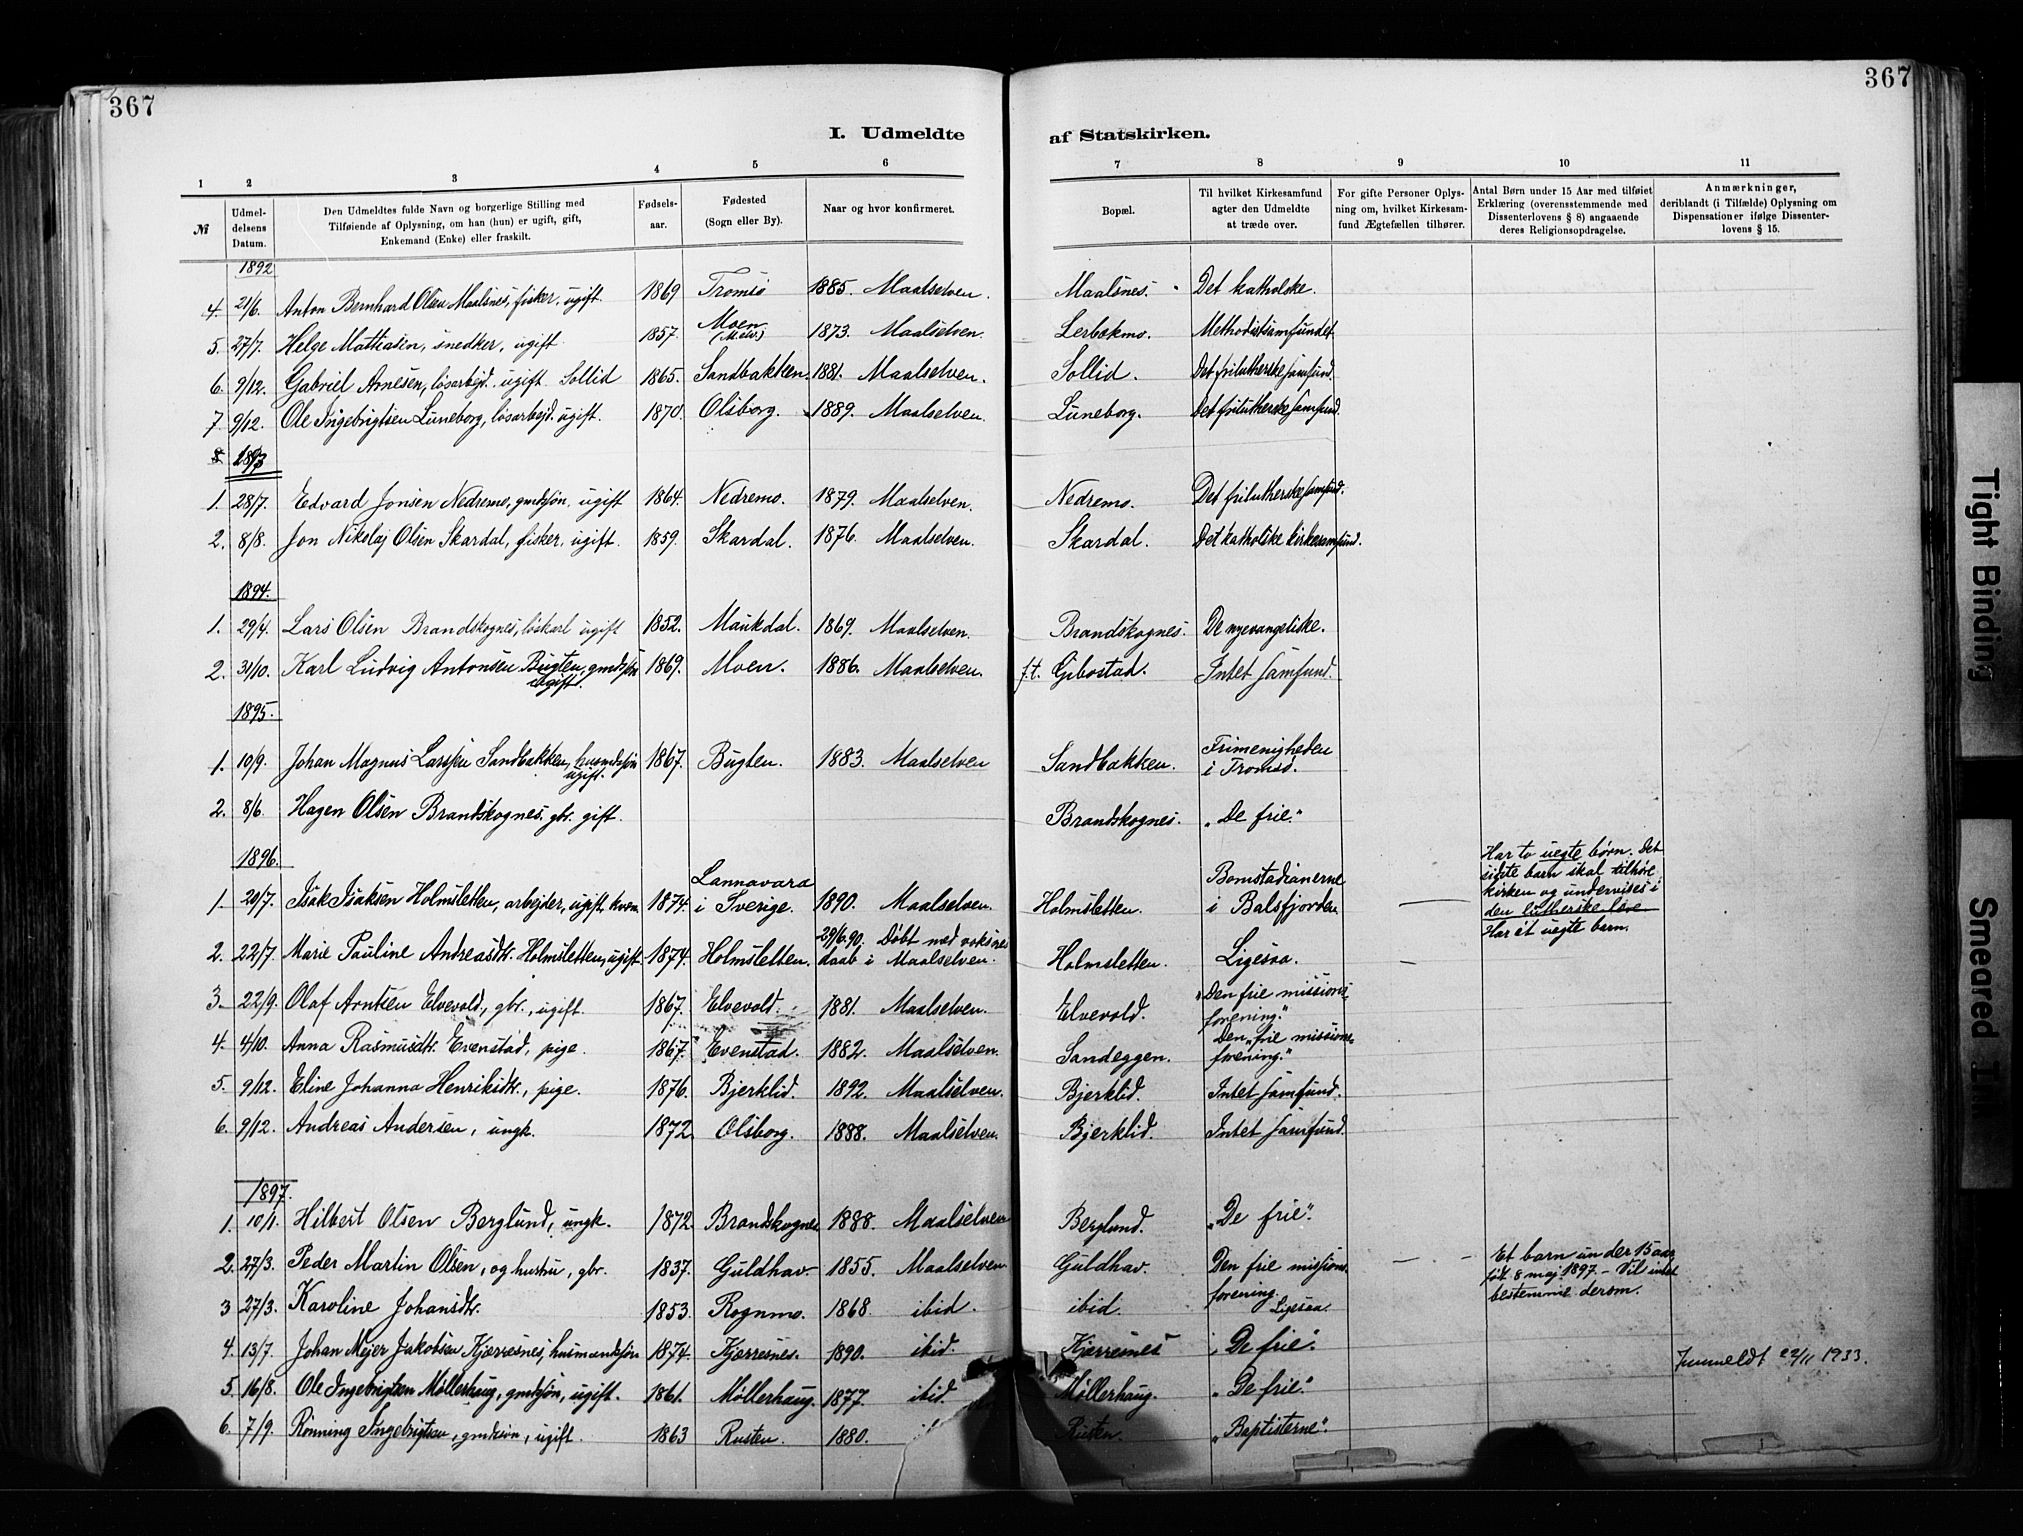 367
367
I. Udmeldte af Statskirken.
1 2 3 4 5 6 7 8 9 10 11
№
Udmeldelsens Datum.
Den Udmeldtes fulde Navn og borgerlige Stilling med Tilføiende af Oplysning, om han (hun) er ugift, gift, Enkemand (Enke) eller fraskilt.
Fødselsaar.
Fødested (Sogn eller By).
Naar og hvor konfirmeret.
Bopæl.
Til hvilket Kirkesamfund agter den Udmeldte at træde over.
For gifte Personer Oplysning om, hvilket Kirkesamfund Ægtefællen tilhører.
Antal Børn under 15 Aar med tilføiet Erklæring (overensstemmende med Dissenterlovens § 8) angaaende deres Religionsopdragelse.
Anmærkninger, deriblandt (i Tilfælde) Oplysning om Dispensationer ifølge Dissenterlovens § 15.
1892
4. 21/6. Anton Bernhard Olsen Maalsnes, fisker, ugift. 1869 Tromsø 1885. Maalselven. Maalsnes. Det katholske.
5. 27/7. Helge Mathiasen, snedker, ugift 1857. Moen (M.elv) 1873. Maalselven. Lerbakmo. Methodistsamfundet
6. 9/12. Gabriel Arnesen, løsarbejd. ugift Sollid 1865. Sandbakken. 1881. Maalselven. Sollid. Det frilutherske samfund.
7. 9/12. Ole Ingebrigtsen Luneborg, løsarbejd. ugift. 1870. Olsborg. 1889. Maalselven. Luneborg. Det frilutherske samfund.
8 1893
1. 28/7. Edvard Jonsen Nedremo, gmdsøn, ugift 1864. Nedremo. 1879. Maalselven. Nedremo. Det frilutherske samfund.
2. 8/8. Jon Nikolaj Olsen Skardal, fisker, ugift. 1859. Skardal. 1876. Maalselven. Skardal. Det katholske kirkesamfund.
1894.
1. 29/4. Lars Olsen Brandskognes, løskarl ugift 1852. Maukdal. 1869. Maalselven. Brandskognes. De nyevangeliske.
2. 31/10. Karl Ludvig Antonsen Bugten, gmdsøn ugift. 1869. Moen. 1886. Maalselven. f.t. Gibostad. Intet samfund.
1895.
1. 10/9. Johan Magnus Larssen Sandbakken, husmdsøn ugift. 1867. Bugten. 1883. Maalselven Sandbakken. Frimenigheden i Tromsø.
2. 8/6. Hagen Olsen Brandskognes, gbr. gift. Brandskognes. "De frie."
1896.
1. 20/7. Isak Isaksen Holmsletten, arbejder, ugift, kvæn 1874. Lannavara i Sverige. 1890. Maalselven. Holmsletten. Bomstadianerne i Balsfjorden — Har to uegte børn. Det sidste barn skal tilhøre kirken og undervises i den lutherske lære
2. 22/7. Marie Pauline Andreasdtr. Holmsletten, ugift 1874. Holmsletten. 29/6.90. Døbt med voksnes daab i Maalselven. Holmsletten. Ligesaa. — Har ét uegte barn.
3. 22/9. Olaf Arntsen Elvevold, gbr., ugift. 1867. Elvevold. 1881. Maalselven. Elvevold. "Den frie missionsforening."
4. 4/10. Anna Rasmusdtr. Evenstad, pige. 1867. Evenstad. 1882. Maalselven. Sandeggen. Den "frie missionsforening."
5. 9/12. Eline Johanna Henriksdtr., pige. 1876. Bjerklid. 1892. Maalselven. Bjerklid. Intet samfund.
6. 9/12. Andreas Andersen, ungk. 1872. Olsborg. 1888. Maalselven. Bjerklid. Intet samfund.
1897.
1. 10/1. Hilbert Olsen Berglund, ungk. 1872. Brandskognes 1888. Maalselven Berglund. "De frie".
2. 27/3. Peder Martin Olsen, og hustru, gbr. 1837. Guldhav. 1855. Maalselven Guldhav. Den frie missionsforening. — Et barn under 15 aar, født 8 maj 1897. - Vil intet bestemme derom.
3 27/3. Karoline Johansdtr. 1853. Rognmo. 1868. ibid. ibid. Ligesaa.
4. 13/7. Johan Mejer Jakobsen Kjærresnes, husmandssøn 1874. Kjærresnes. 1890. ibid. Kjærresnes "De frie". Innmeldt 22/11 1933.
5. 16/8. Ole Ingebrigtsen Møllerhaug, gmdsøn, ugift. 1861. Møllerhaug. 1877. ibid. Møllerhaug. "De frie".
6. 7/9. Rønning Ingebrigtsen, gmdsøn, ugift. 1863 Rusten. 1880. Rusten. "Baptisterne".
Tight Binding
Smeared I